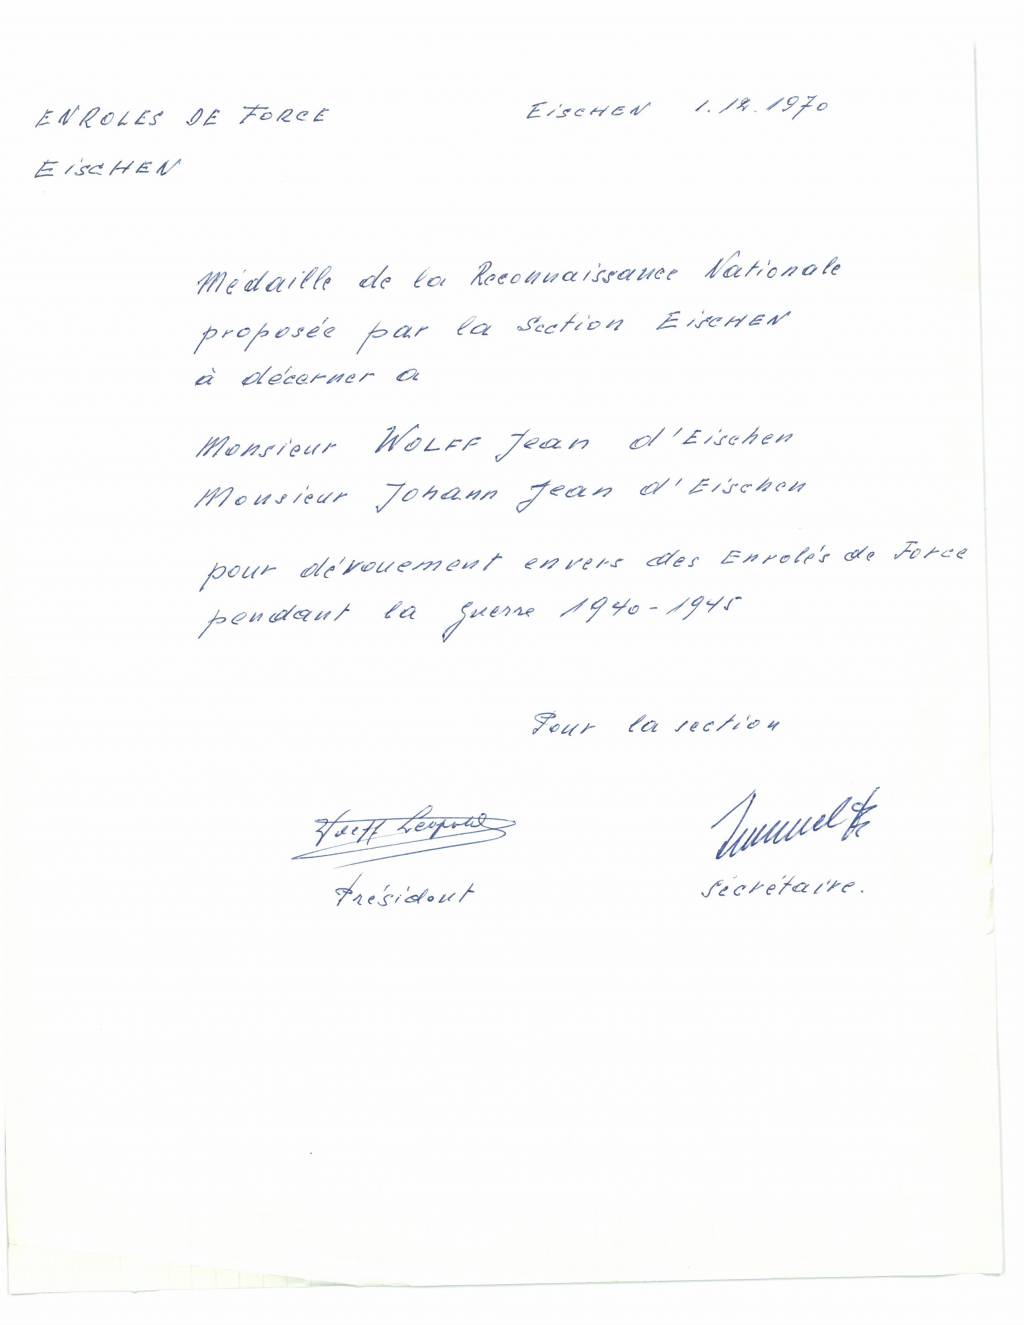 ENROLES DE FORCE
EISCHEN 1.12.1970
EISCHEN
Médaille de la Reconnaissance Nationale
proposée par la Section EISCHEN
à décerner a
Monsieur WOLFF Jean d'Eischen
Monsieur Johann Jean d'Eischen
pour dévouement envers des Enrolés de Force
pendant la guerre 1940-1945
Pour la section
Léopold
Président
secrétaire.